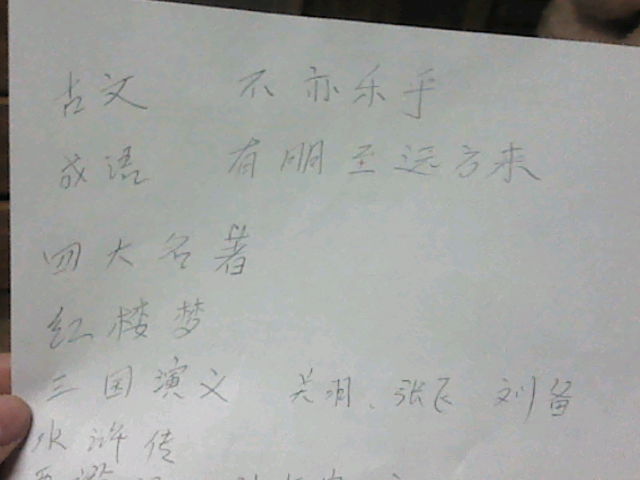 古文 不亦乐乎
成语 有朋至远方来
四大名著
红楼梦
三国演义 关羽、张飞 刘备
水浒传